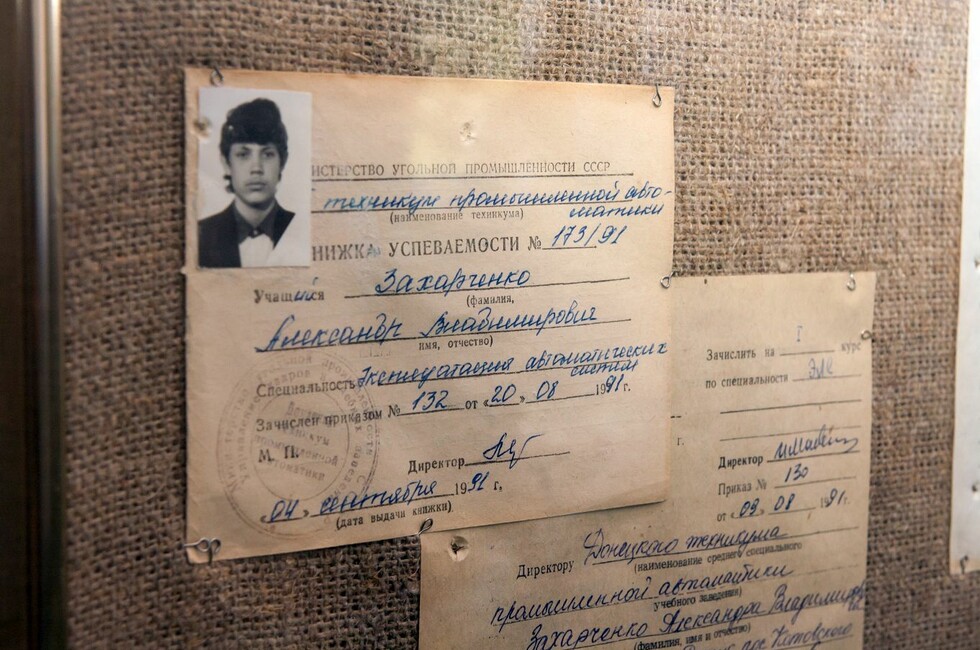 МИНИСТЕРСТВО УГОЛЬНОЙ ПРОМЫШЛЕННОСТИ СССР
техникум промышленной авто-
(наименование техникума) матики
КНИЖКА УСПЕВАЕМОСТИ № 173/91
Учащийся Захарченко
(фамилия,
Александр Владимирович
имя, отчество)
Специальность Эксплуатация автоматических
систем
Зачислен приказом № 132 от «20» 08 1991 г.
М. П.
Директор
«04» сентября 1991 г.
(дата выдачи книжки)
Зачислить на I курс
по специальности ЭАС
г.
Директор
Приказ № 130
от «09» 08 1991 г.
Директору Донецкого техникума
(наименование среднего специального
промышленной автоматики
учебного заведения)
Захарченко Александра Владимиров
(фамилия, имя и отчество)
пос Котовского